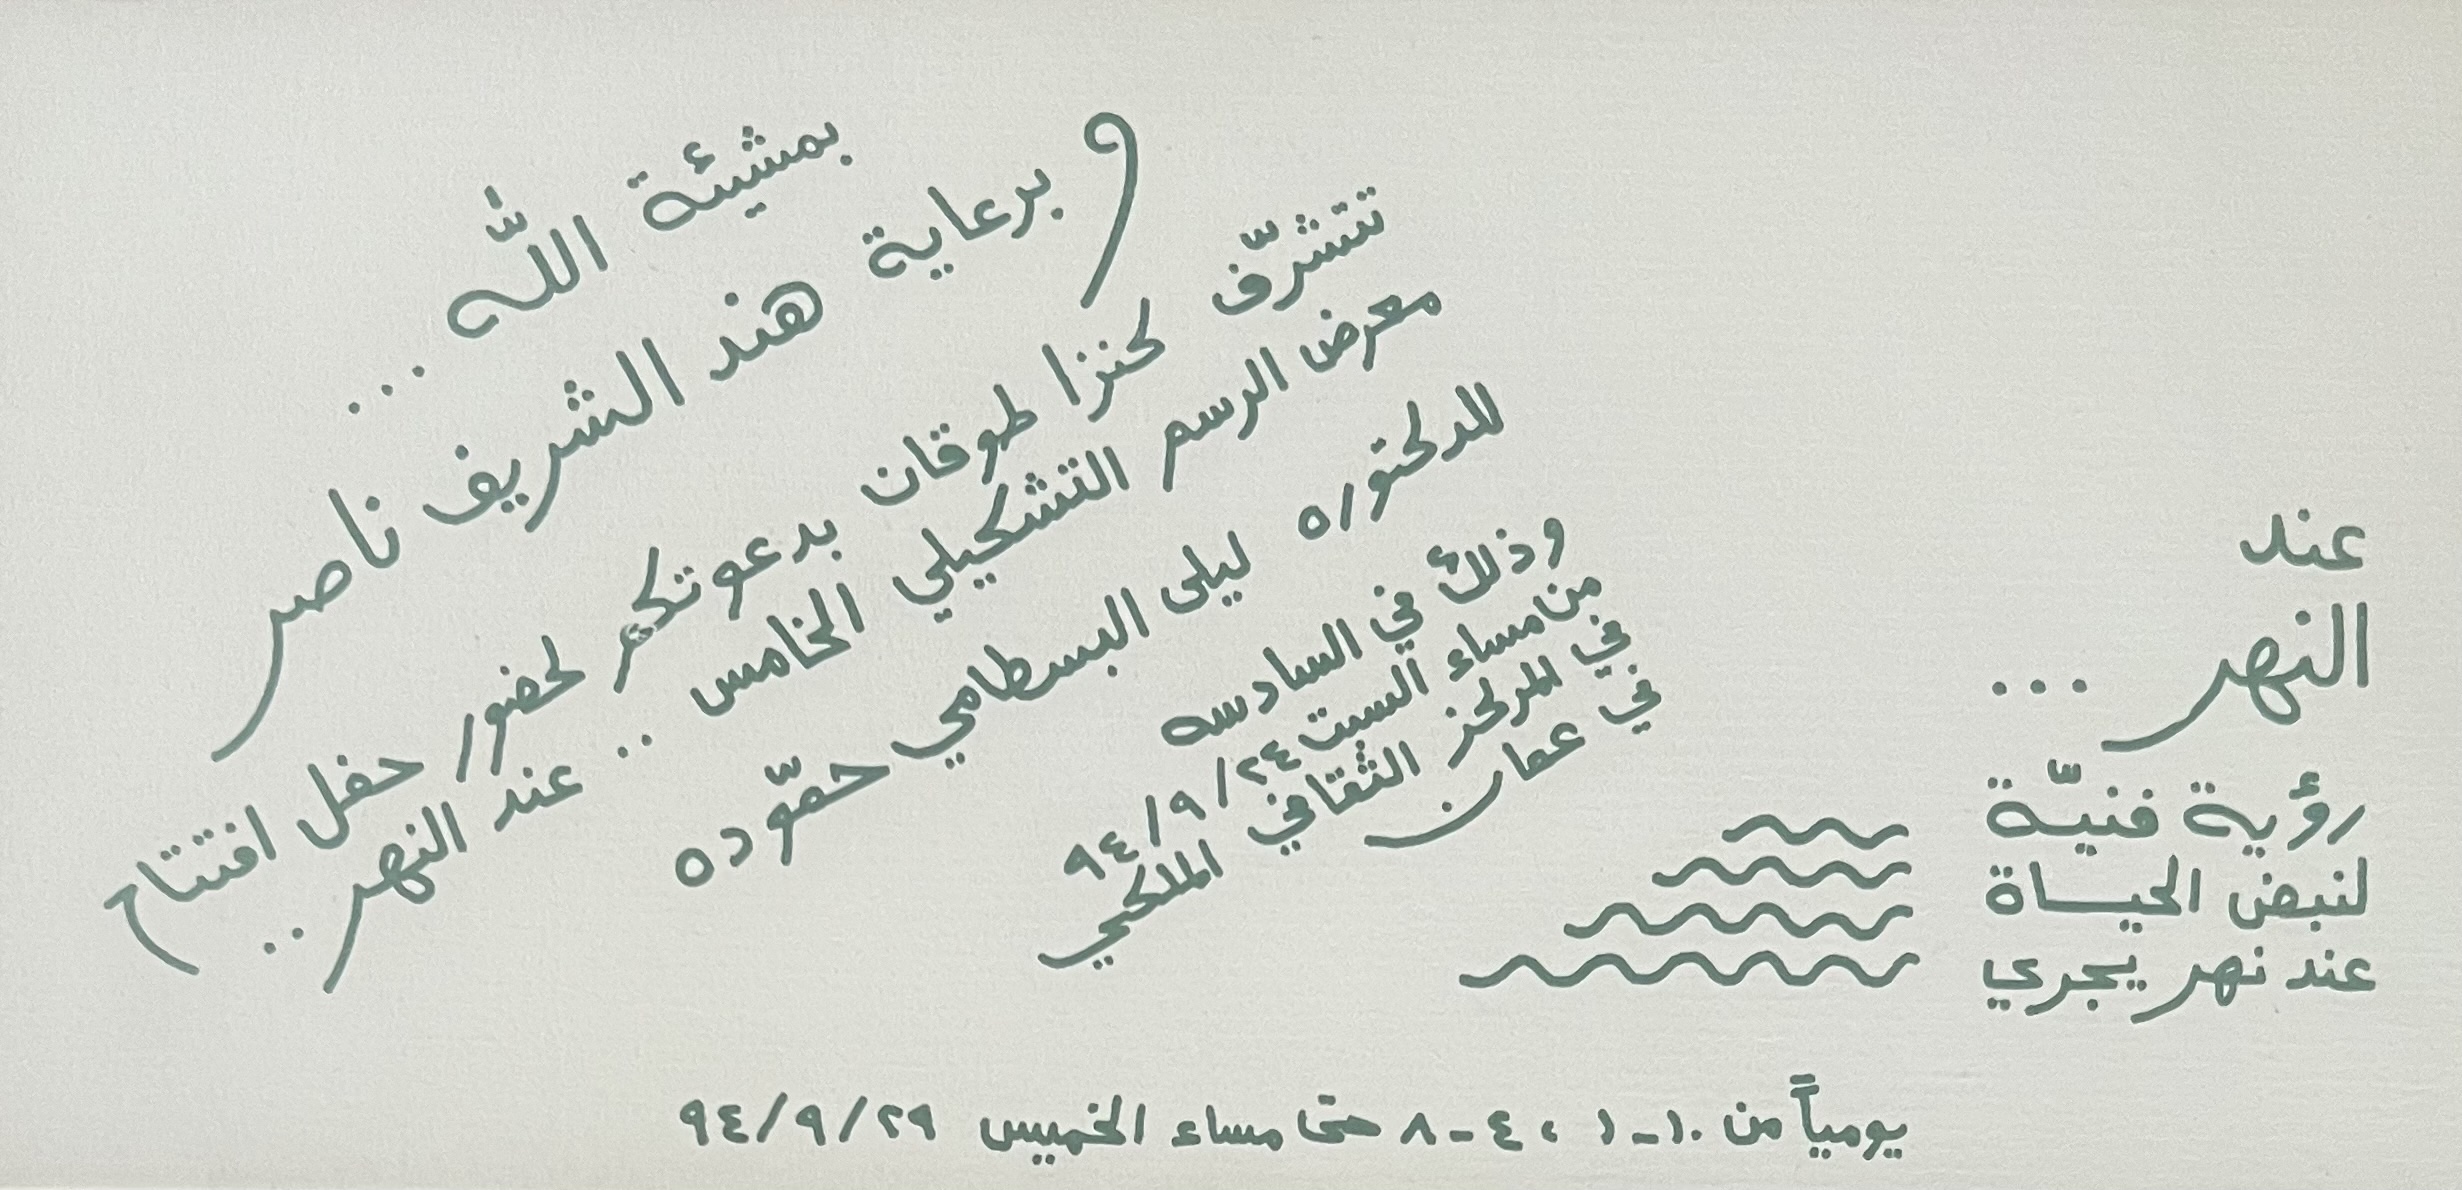 بمشيئة الله ...
و برعاية هند الشريف ناصر
تتشرّف كنزا طوقان بدعوتكم لحضور حفل افتتاح
معرض الرسم التشكيلي الخامس .. عند النهر ..
للدكتوره ليلى البسطامي حمّوده
وذلك في السادسه
من مساء السبت ٩٤/٩/٢٤
في المركز الثقافي الملكي
في عمان
عند
النهر ...
رؤية فنيّة
لنبض الحياة
عند نهر يجري
يومياً من ١٠-١ ، ٤-٨ حتى مساء الخميس ٩٤/٩/٢٩